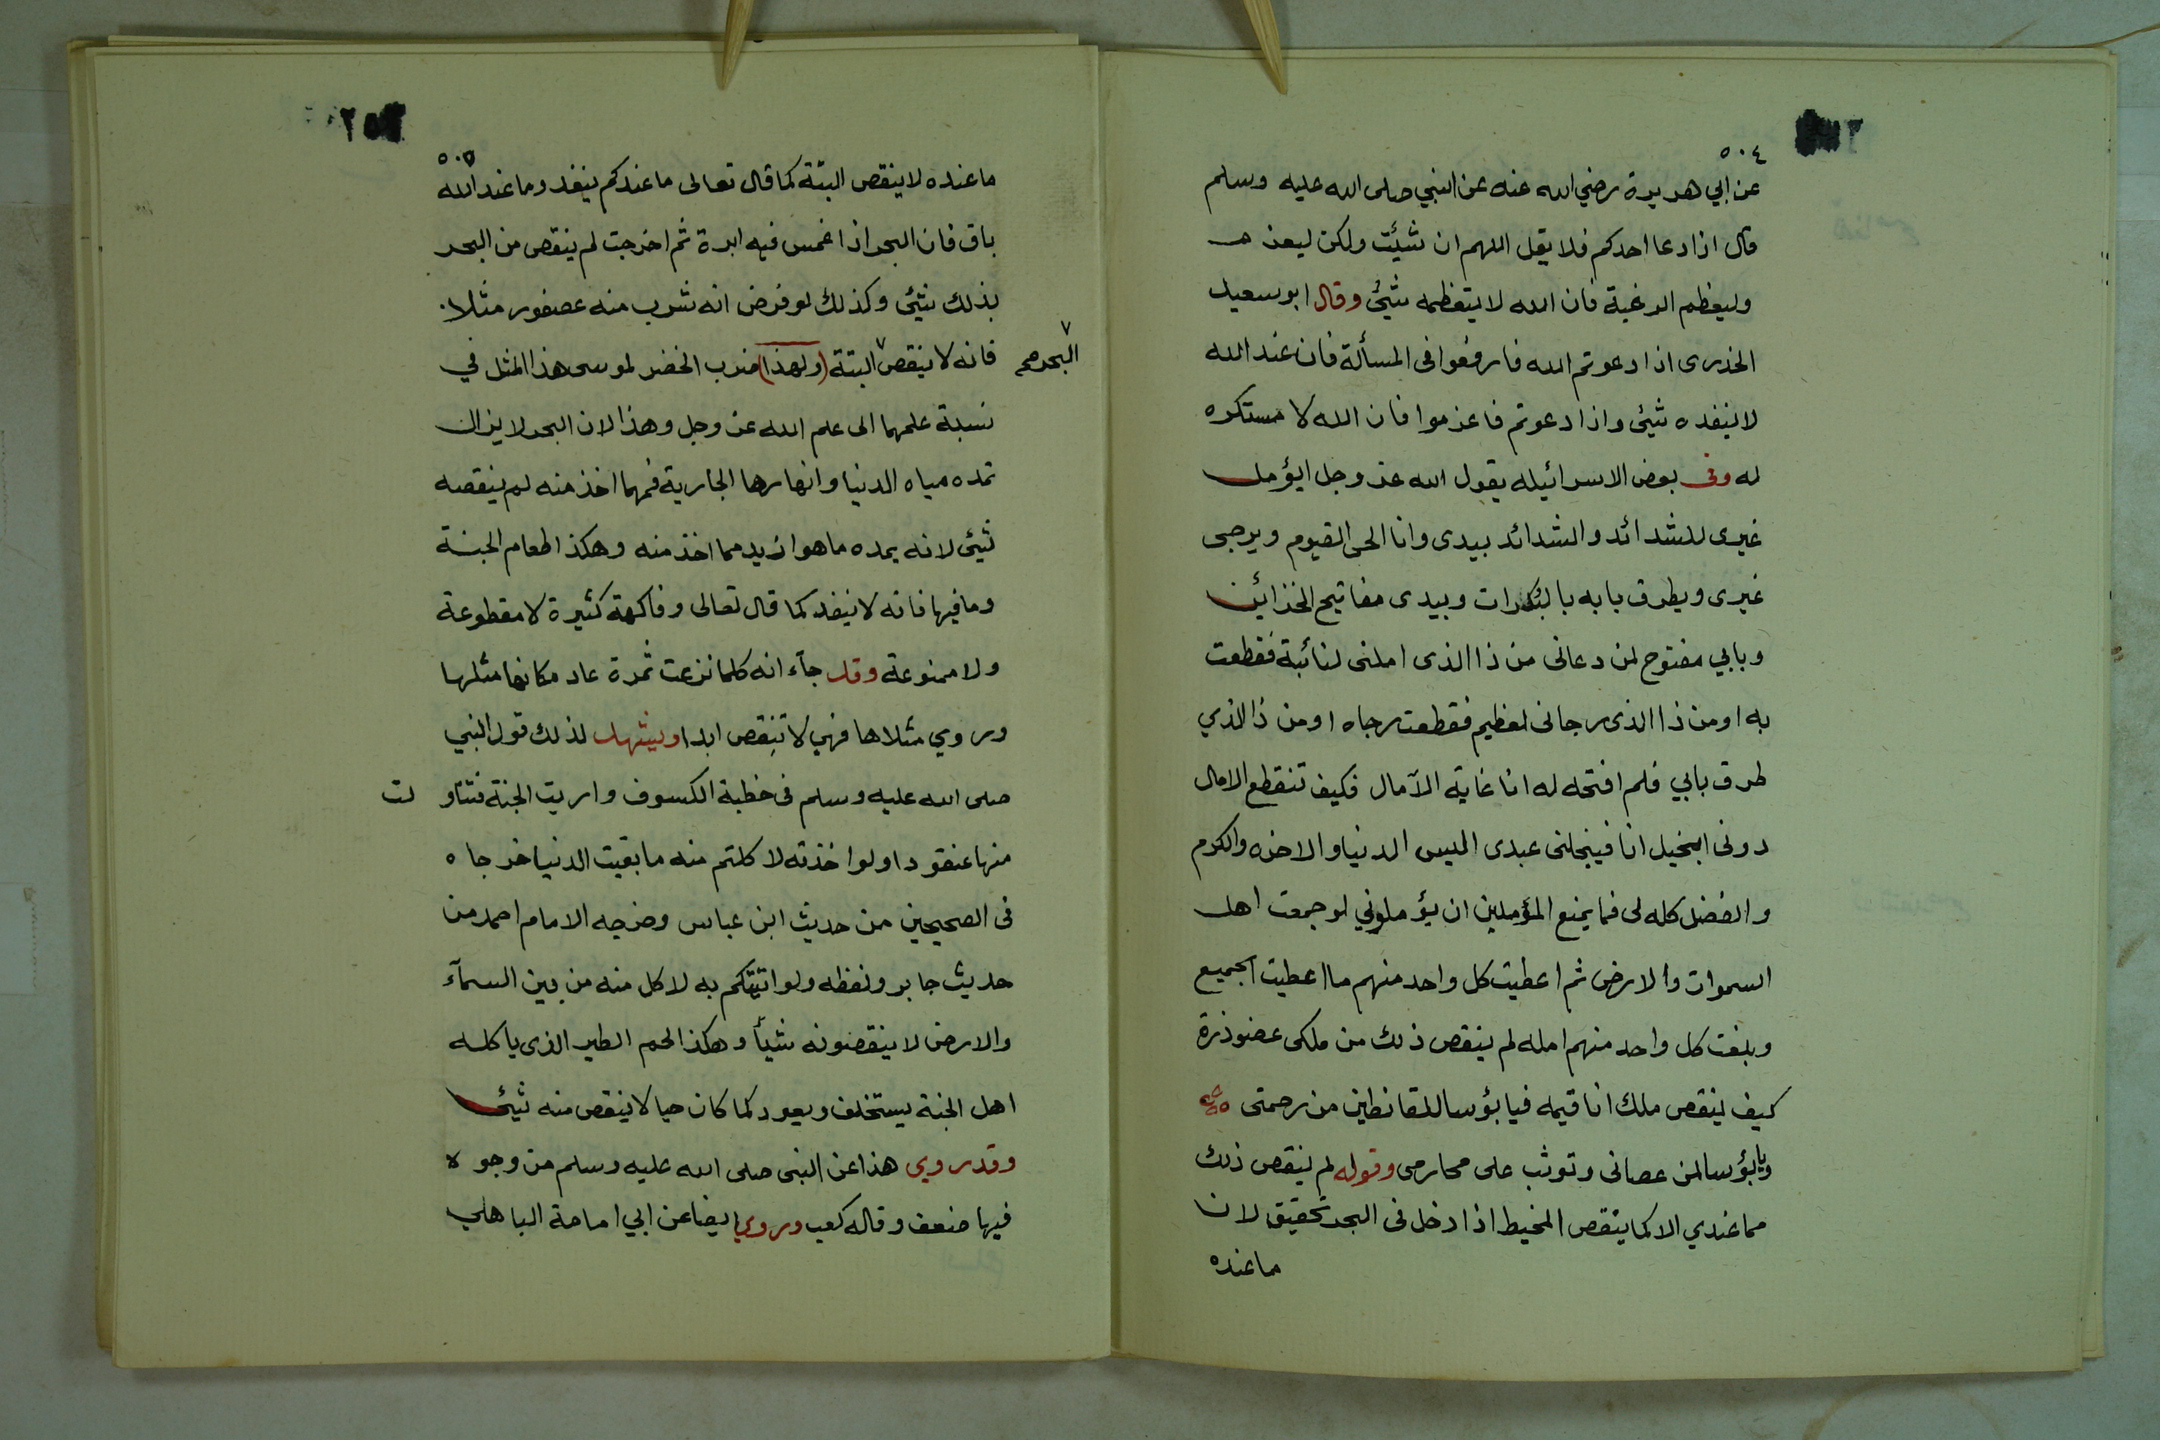 ٥٠٤
عن ابي هريرة رضي الله عنه عن النبي صلى الله عليه وسلم
قال اذا دعا احدكم فلا يقل اللهم ان شئت ولكن ليعزم
وليعظم الرغبة فان الله لا يتعظمه شئ وقال ابو سعيد
الخدرى اذا دعوتم الله فارفعوا فى المسألة فان عند الله
لا ينفده شئ واذا دعوتم فاعزموا فان الله لا مستكره
له وفى بعض الاسرائيله يقول الله عز وجل ايؤمل
غيرى للشدائد والشدائد بيدى وانا الحى القيوم ويرجى
غيرى ويطرق بابه بالبكرات وبيدى مفاتيح الخزائن
وبابي مفتوح لمن دعانى من ذا الذى املنى لنائبة فقطعت
به او من ذا الذى رجانى لعظيم فقطعت رجاه او من ذا الذي
طرق بابي فلم افتحه له انا غاية الآمال فكيف تنقطع الامال
دونى ابخيل انا فيبخلنى عبدى اليس الدنيا والاخره والكرم
والفضل كله لى فما يمنع المؤملين ان يؤملوني لو جمعت اهل
السموات والارض ثم اعطيت كل واحد منهم ما اعطيت الجميع
وبلغت كل واحد منهم امله لم ينقص ذلك من ملكى عضو ذرة
كيف ينقص ملك انا قيمه فيا بؤسا للقانطين من رحمتى
ويا بؤسا لمن عصانى وتوثب على محارمى وقوله لم ينقص ذلك
مما عندي الا كما ينقص المخيط اذا دخل فى البحر تحقيق لان
ما عنده
٢٥٢
٥٠٥
ما عنده لا ينقص البتة كما قال تعالى ما عندكم ينفد وما عند الله
باق فان البحر اذا غمس فيه ابرة ثم اخرجت لم ينقص من البحر
بذلك شئ وكذلك لو فرض انه شرب منه عصفور مثلا
فانه لا ينقص البتة (ولهذا) ضرب الخضر لموسى هذا المثل في
البحر صح
نسبة علمهما الى علم الله عز وجل وهذا لان البحر لا يزال
تمده مياه الدنيا وانهارها الجارية فمهما اخذ منه لم ينقصه
شئ لانه يمده ما هو ازيد مما اخذ منه وهكذا طعام الجنة
وما فيها فانه لا ينفد كما قال تعالى وفاكهة كثيرة لا مقطوعة
ولا ممنوعة وقد جآء انه كلما نزعت ثمرة عاد مكانها مثلها
وروي مثلاها فهي لا تنقص ابدا ويشهد لذلك قول النبي
صلى الله عليه وسلم فى خطبة الكسوف واريت الجنة فتناو لت
منها عنقودا ولو اخذته لاكلتم منه ما بقيت الدنيا خرجاه
فى الصحيحين من حديث ابن عباس وخرجه الامام احمد من
حديث جابر ولفظه ولو اتيتكم به لاكل منه من بين السمآء
والارض لا ينقصونه شيأ وهكذا لحم الطير الذى ياكله
اهل الجنة يستخلف ويعود كما كان حيا لا ينقص منه شئ
وقد روي هذا عن النبى صلى الله عليه وسلم من وجوه
فيها ضعف وقاله كعب وروي ايضا عن ابي امامة الباهلي